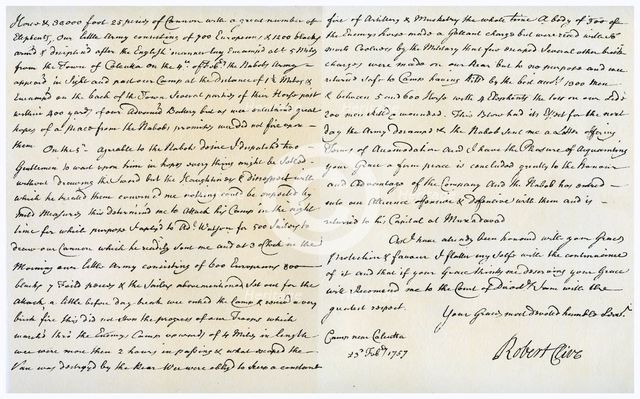 Horse & 38000 foot 25 pieces of Cannon with a great number of
Elephants. Our little Army consisting of 700 Europeans & 1200 blacks
arm'd & disciplin'd after the English manner lay Encamp'd at 5 Miles
from the Town of Calcutta on the 4th of Feb. the Nabobs Army
appear'd in Sight and past our Camp at the Distance of 1½ Miles &
Encamp'd on the back of the Town Several parties of their Horse past
within 400 yards of our Advanced Battery but as we entertained great
hopes of a Peace from the Nabobs promises we did not fire upon
them On the 5th agreable to the Nabobs desire I dispatch'd two
Gentlemen to wait upon him in hopes every thing might be Settled
without drawing the Sword but the Haughtiness & disrespect with
which he treated them convinced me nothing could be expected by
mild Measures this determined me to Attack his Camp in the night
time for which purpose I apply'd to Adl. Watson for 500 Sailors to
draw our Cannon which he readily sent me and at 3 o'Clock in the
Morning our little Army consisting of 600 Europeans 800
blacks 7 Field pieces & the Sailors abovementioned Set out for the
Attack a little before day break we enter'd the Camp & receiv'd a very
brisk fire this did not stop the progress of our Troops which
march'd thro' the Enemys Camp upwards of 4 Miles in length
we were more then 2 hours in passing & what escaped the
Van was destroy'd by the Rear We were obliged to keep a constant
fire of Artillery & Musketry the whole time A body of 300 of
the Enemys horse made a Gallant charge but were received with so
much Coolness by the Military that few escaped Several other brisk
charges were made on our Rear but to no purpose and we
returned safe to Camp having kill'd by the best acct. 1300 Men
& between 5 and 600 Horse with 4 Elephants the loss on our Side
200 men killed & wounded. This Blow had its Effect for the next
day the Army decamp'd & the Nabob sent me a Letter offering
Terms of Accomodation And I have the Pleasure of Acquainting
your Grace a firm peace is concluded greatly to the Honour
and Advantage of the Company And the Nabob has entred
into an Alliance offensive & Defensive with them and is
returned to his Capital at Muxadavad
As I have already been honoured with your Graces
Protection & favour I flatter my Selfe with the continuance
of it and that if your Grace thinks me deserving your Grace
will recommend me to the Court of Directrs. I am with the
greatest respect.
Your Graces most devoted humble Servt.
Camp near Calcutta
23 Feby. 1757
Robert Clive